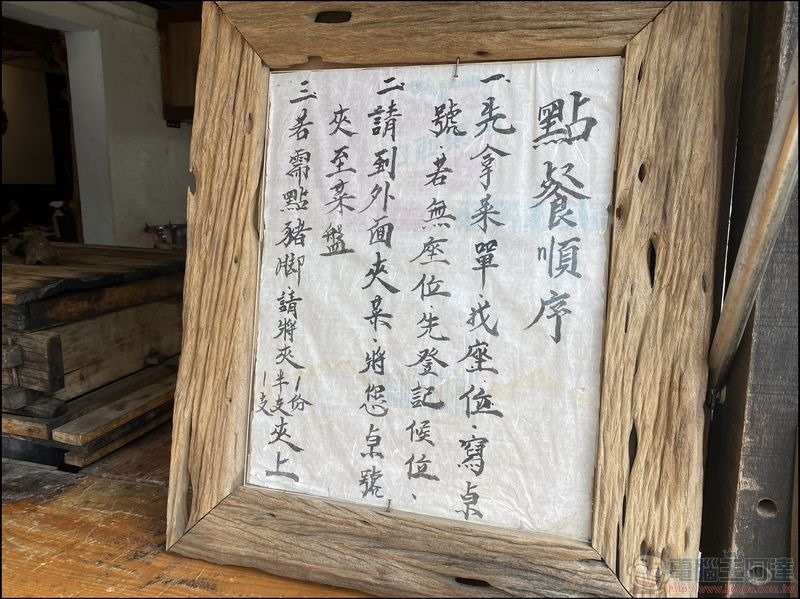 點餐順序
一、先拿菜單、找座位、寫桌
號、若無座位、先登記候位、
二、請到外面夾菜、將您桌號
夾至菜盤
三、若需點豬脚、請將夾半支/份
/支夾上
電腦王阿達
http://www.kocpc.com.tw